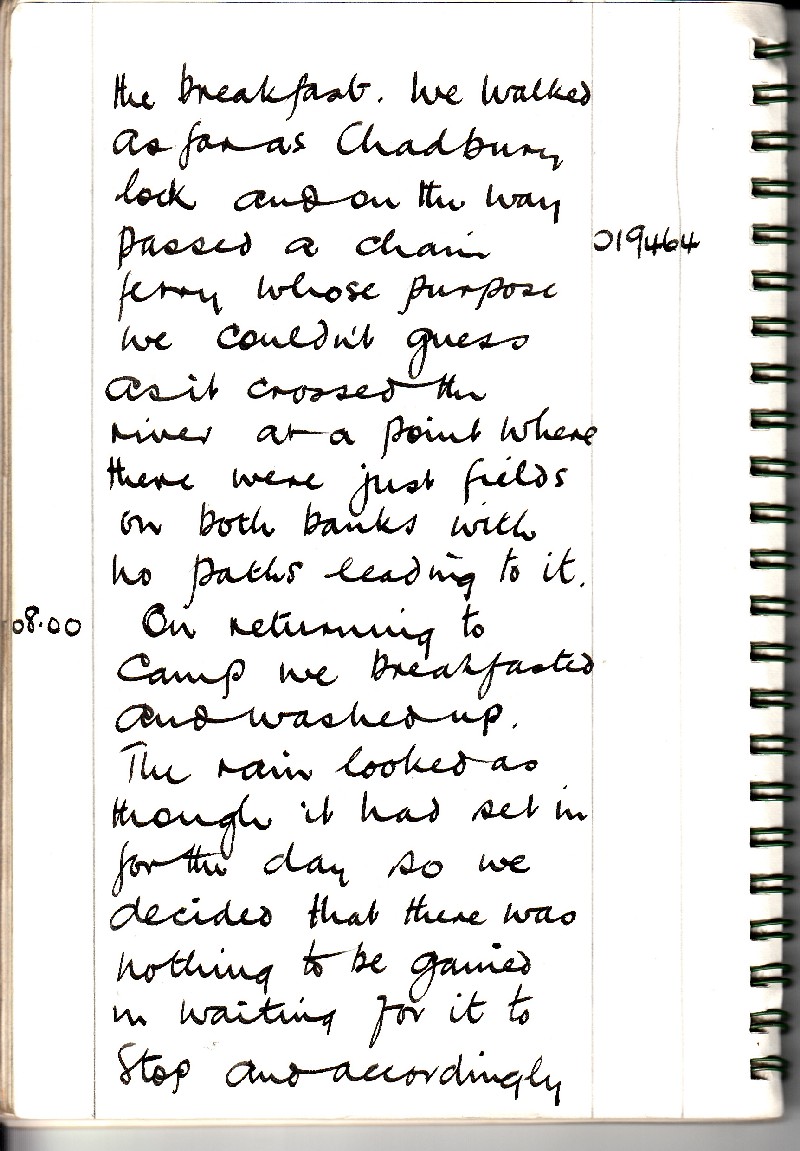 the breakfast. We walked
as far as Chadbury
lock and on the way
passed a chain 019464
ferry whose purpose
we couldn't guess
as it crossed the
river at a point where
there were just fields
on both banks with
no paths leading to it.
08.00 On returning to
Camp we breakfasted
and washed up.
The rain looked as
though it had set in
for the day so we
decided that there was
nothing to be gained
in waiting for it to
Stop and accordingly